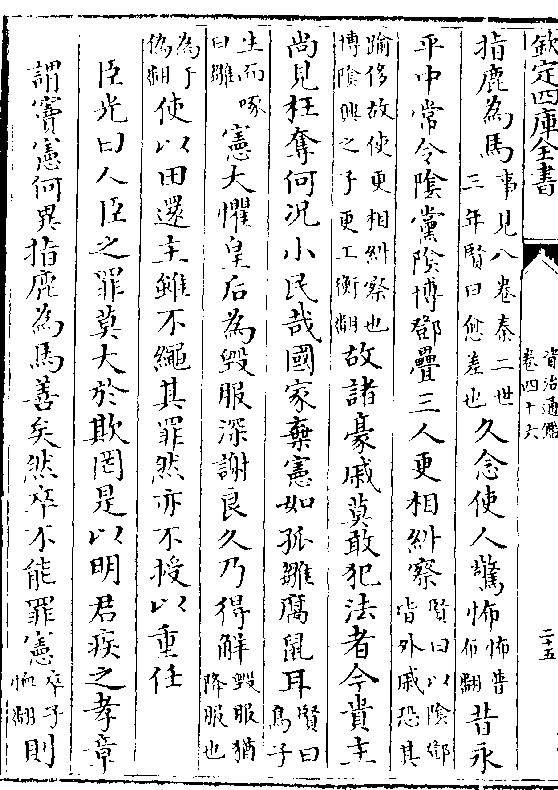 欽定四庫全書
資治通鑑
卷四十六
二十五
指鹿為馬事見八卷秦二世三年賢曰愈差也久念使人驚怖怖普布翻昔永
平中常令陰黨陰博鄧疊三人更相糾察賢曰以陰鄧皆外戚恐其
踰侈故使更相糾察也博陰興之子更工衡翻故諸豪戚莫敢犯法者今貴主
尚見枉奪何况小民哉國家棄憲如孤雛腐鼠耳賢曰鳥子
生而啄曰雛憲大懼皇后為毀服深謝良久乃得解毀服猶降服也
為于偽翻使以田還主雖不繩其罪然亦不授以重任
臣光曰人臣之罪莫大於欺罔是以明君疾之孝章
謂竇憲何異指鹿為馬善矣然卒不能罪憲卒子恤翻則